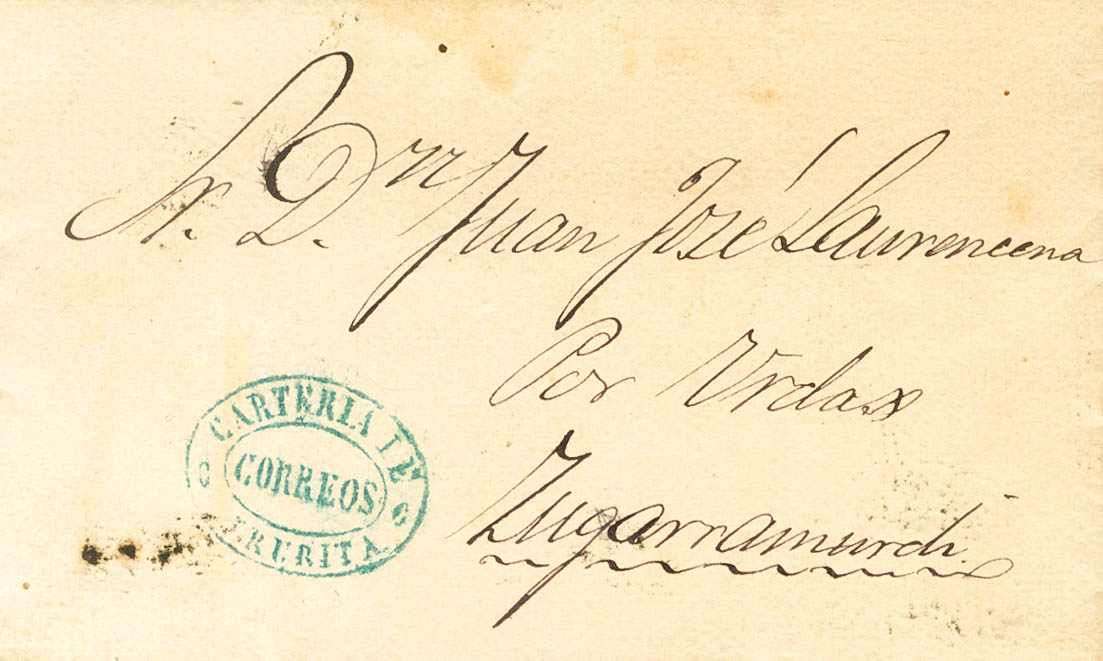 Sr. D.n Juan José Laurencena
Por Urdax
Zugarramurdi
CARTERIA DE
CORREOS
IRURITA